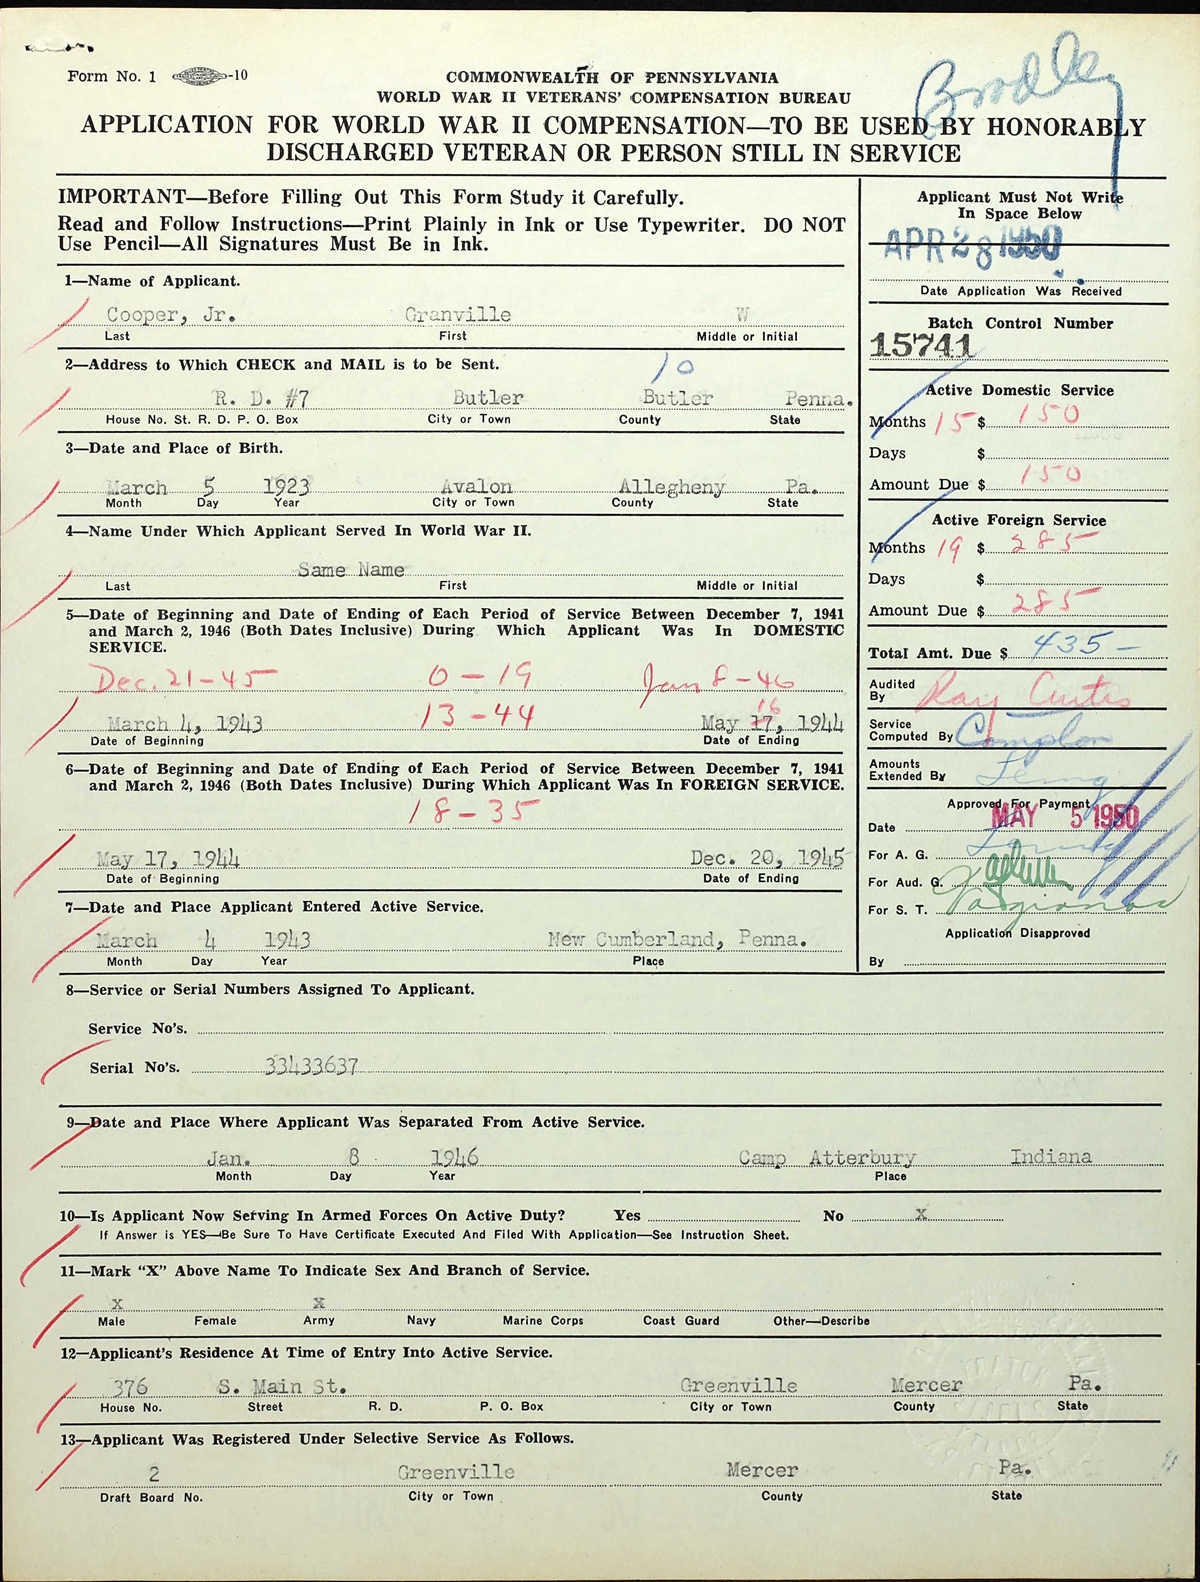 Form No. 1 -10
Bradley
COMMONWEALTH OF PENNSYLVANIA
WORLD WAR II VETERANS' COMPENSATION BUREAU
APPLICATION FOR WORLD WAR II COMPENSATION—TO BE USED BY HONORABLY
DISCHARGED VETERAN OR PERSON STILL IN SERVICE
IMPORTANT—Before Filling Out This Form Study it Carefully.
Read and Follow Instructions—Print Plainly in Ink or Use Typewriter. DO NOT
Use Pencil—All Signatures Must Be in Ink.
1—Name of Applicant.
Cooper, Jr. Granville W
Last First Middle or Initial
2—Address to Which CHECK and MAIL is to be Sent.
10
R. D. #7 Butler Butler Penna.
House No. St. R. D. P. O. Box City or Town County State
3—Date and Place of Birth.
March 5 1923 Avalon Allegheny Pa.
Month Day Year City or Town County State
4—Name Under Which Applicant Served In World War II.
Same Name
Last First Middle or Initial
5—Date of Beginning and Date of Ending of Each Period of Service Between December 7, 1941
and March 2, 1946 (Both Dates Inclusive) During Which Applicant Was In DOMESTIC
SERVICE.
Dec. 21-45 0-19 Jan 8-46
16
March 4, 1943 13-44 May 17, 1944
Date of Beginning Date of Ending
6—Date of Beginning and Date of Ending of Each Period of Service Between December 7, 1941
and March 2, 1946 (Both Dates Inclusive) During Which Applicant Was In FOREIGN SERVICE.
18-35
May 17, 1944 Dec. 20, 1945
Date of Beginning Date of Ending
7—Date and Place Applicant Entered Active Service.
March 4 1943 New Cumberland, Penna.
Month Day Year Place
Applicant Must Not Write
In Space Below
APR 28 1950
Date Application Was Received
Batch Control Number
15741
Active Domestic Service
Months 15 $ 150
Days $
Amount Due $ 150
Active Foreign Service
Months 19 $ 285
Days $
Amount Due $ 285
Total Amt. Due $ 435-
Audited
By Ray Curtis
Service
Computed By Compton
Amounts
Extended By
Approved For Payment
Date MAY 5 1950
For A. G.
For Aud. G.
For S. T.
Application Disapproved
By
8—Service or Serial Numbers Assigned To Applicant.
Service No's.
Serial No's. 33433637
9—Date and Place Where Applicant Was Separated From Active Service.
Jan. 8 1946 Camp Atterbury Indiana
Month Day Year Place
10—Is Applicant Now Serving In Armed Forces On Active Duty? Yes No X
If Answer is YES—Be Sure To Have Certificate Executed And Filed With Application—See Instruction Sheet.
11—Mark "X" Above Name To Indicate Sex And Branch of Service.
X X
Male Female Army Navy Marine Corps Coast Guard Other—Describe
12—Applicant's Residence At Time of Entry Into Active Service.
376 S. Main St. Greenville Mercer Pa.
House No. Street R. D. P. O. Box City or Town County State
13—Applicant Was Registered Under Selective Service As Follows.
2 Greenville Mercer Pa.
Draft Board No. City or Town County State